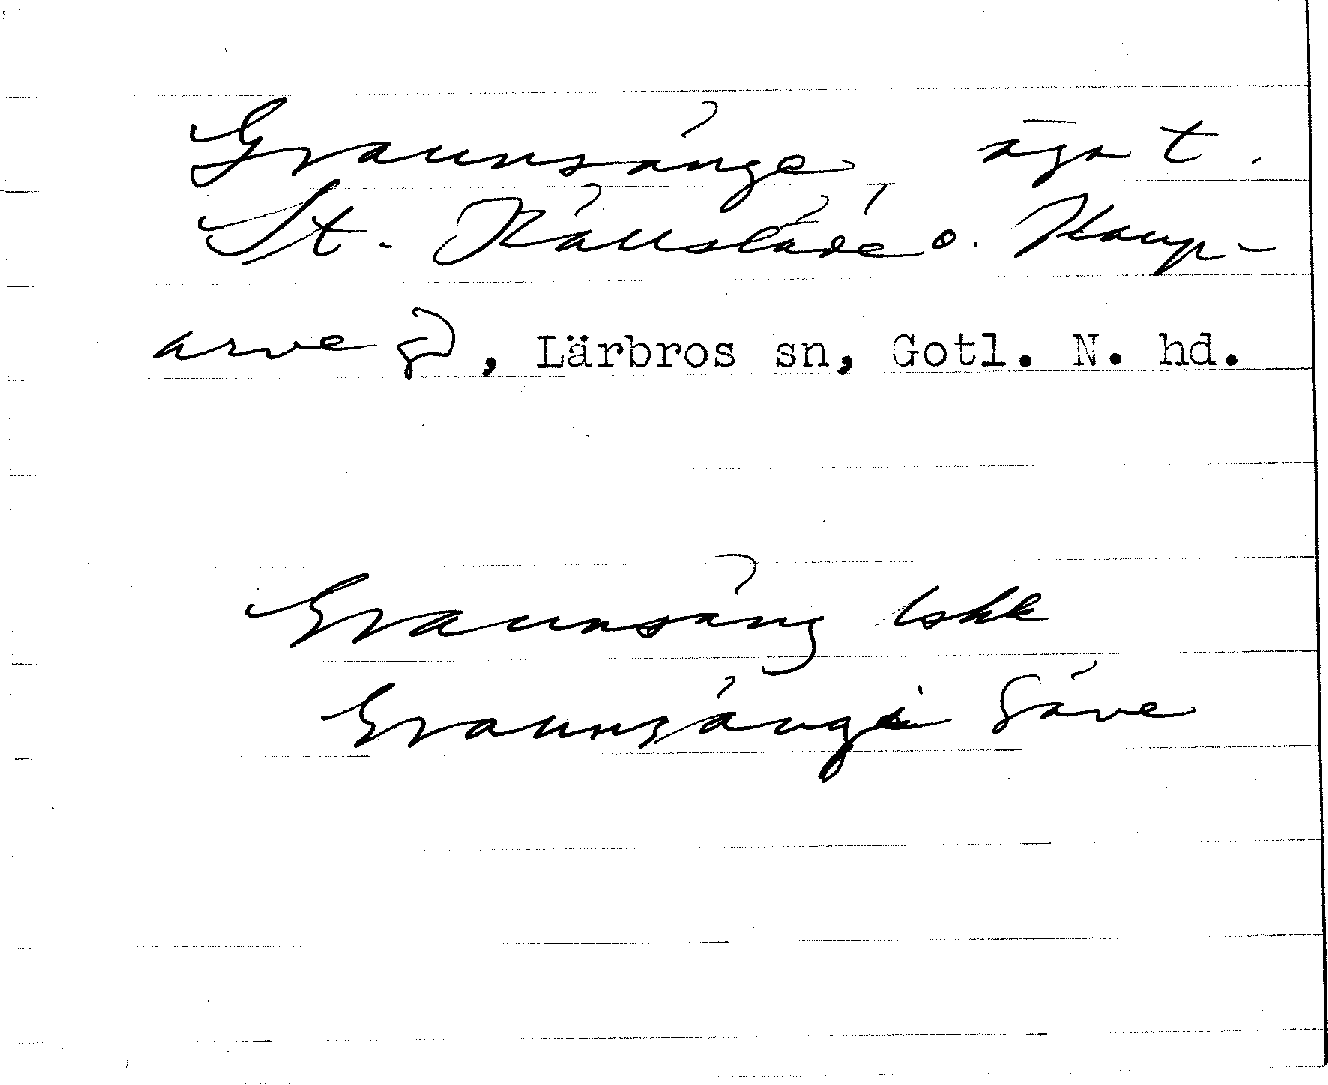 Graunsänge, ägor t.
St. Källstäde o. Kaup-
arve gd, Lärbros sn, Gotl. N. hd.
Graunsäng lshk
Graunsängi Säve